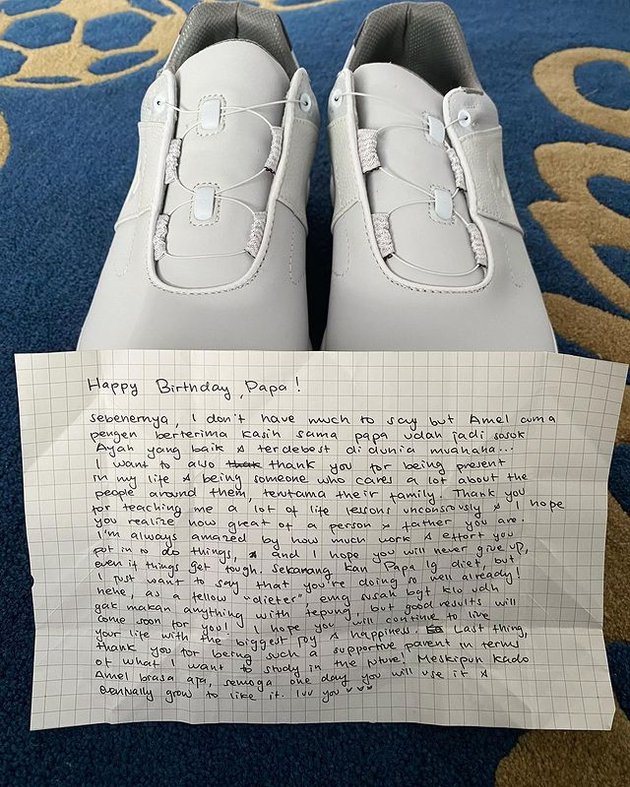 Happy Birthday, Papa!
sebenernya, I don't have much to say but Amel cuma
pengen berterima kasih sama papa udah jadi sosok
Ayah yang baik & terdebest di dunia muahaha...
I want to also thank you for being present
in my life & being someone who cares a lot about the
people around them, terutama their family. Thank you
for teaching me a lot of life lessons unconsously & I hope
you realize how great of a person & father you are.
I'm always amazed by how much work & effort you
put in to do things, & and I hope you will never give up,
even if things get tough. Sekarang kan Papa lg diet, but
I just want to say that you're doing so well already!
hehe, as a fellow "dieter", emg susah bgt klo udh
gak makan anything with tepung, but good results will
come soon for you! I hope you will continue to live
your life with the biggest joy & happiness. Last thing,
thank you for being such a supportive parent in terms
of what I want to study in the future! Meskipun kado
Amel biasa aja, semoga one day you will use it &
eventually grow to like it. luv you